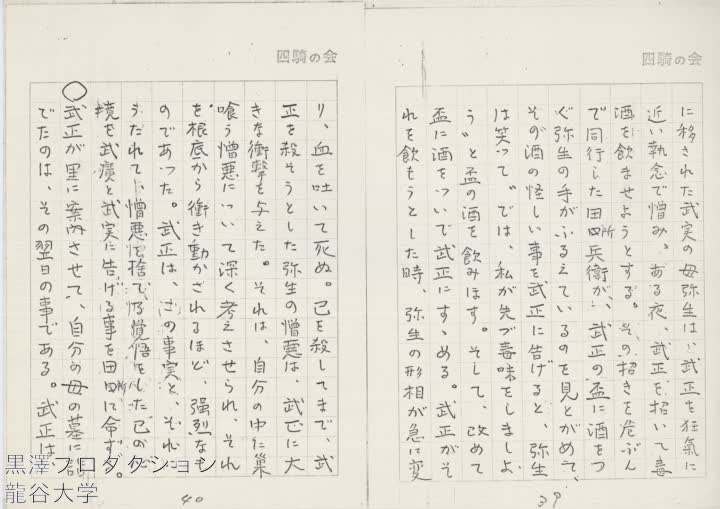 四騎の会
に移された武実の母弥生は、武正を狂気に
近い執念で憎み。ある夜、武正を招いて毒
酒を飲ませようとする。その招きを危ぶん
で同行した田所兵衛が、武正の盃に酒をつ
ぐ弥生の手がふるえているのを見とがめて、
その酒の怪しい事を武正に告げると、弥生
は笑って〝では、私が先づ毒味をしましょ
う〟と盃の酒を飲みほす。そして、改めて
盃に酒をついで武正にすゝめる。武正がそ
れを飲もうとした時、弥生の形相が急に変
39
四騎の会
り、血を吐いて死ぬ。己を殺してまで、武
正を殺そうとした弥生の憎悪は、武正に大
きな衝撃を与えた。それは、自分の中に巣
喰う憎悪について深く考えさせられ、それ
を根底から衝き動かされるほど、強烈なも
のであった。武正は、この事実と、それに
うたれて、憎悪を捨てる覚悟をした己の心
境を武廣と武実に告げる事を田所に命ず。
武正が里に案内させて、自分の母の墓に詣
でたのは、その翌日の事である。武正は
40
黒澤プロダクション
龍谷大学